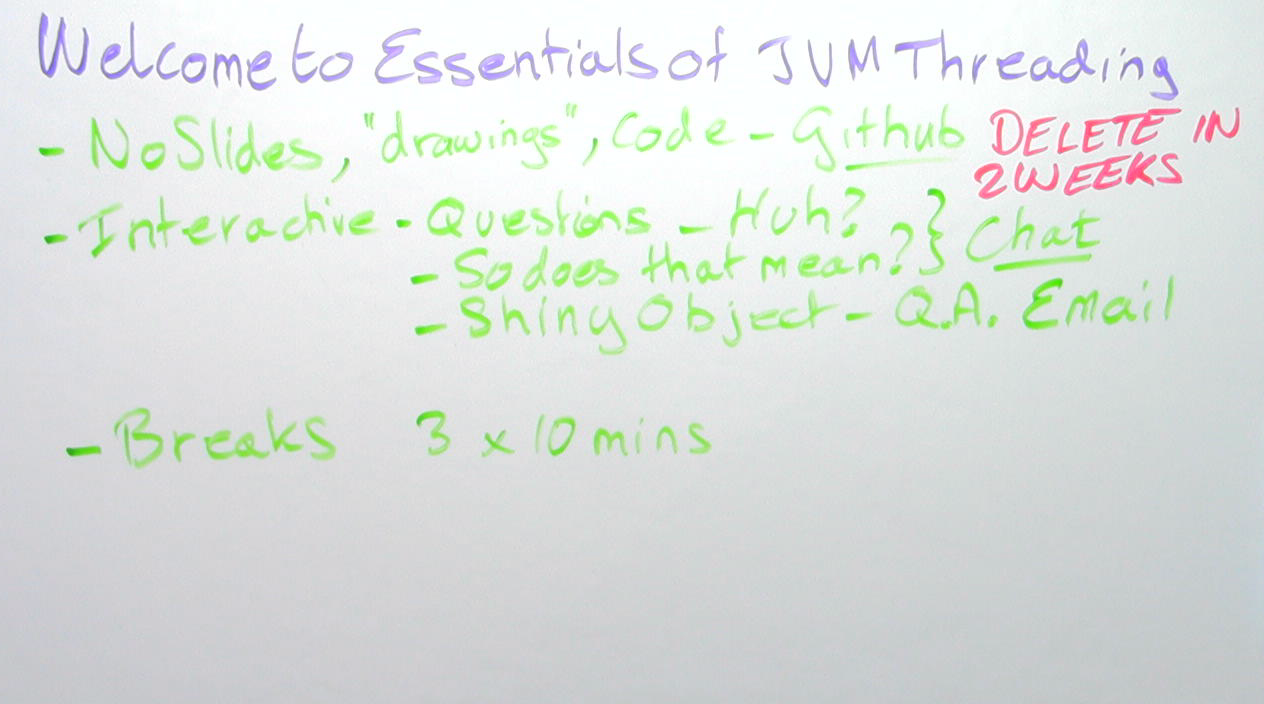 Welcome to Essentials of JVM Threading
- No Slides, "drawings", Code - Github DELETE IN
2 WEEKS
- Interactive - Questions - Huh? } Chat
- So does that mean? }
- Shiny Object - Q.A. Email
- Breaks 3 x 10 mins